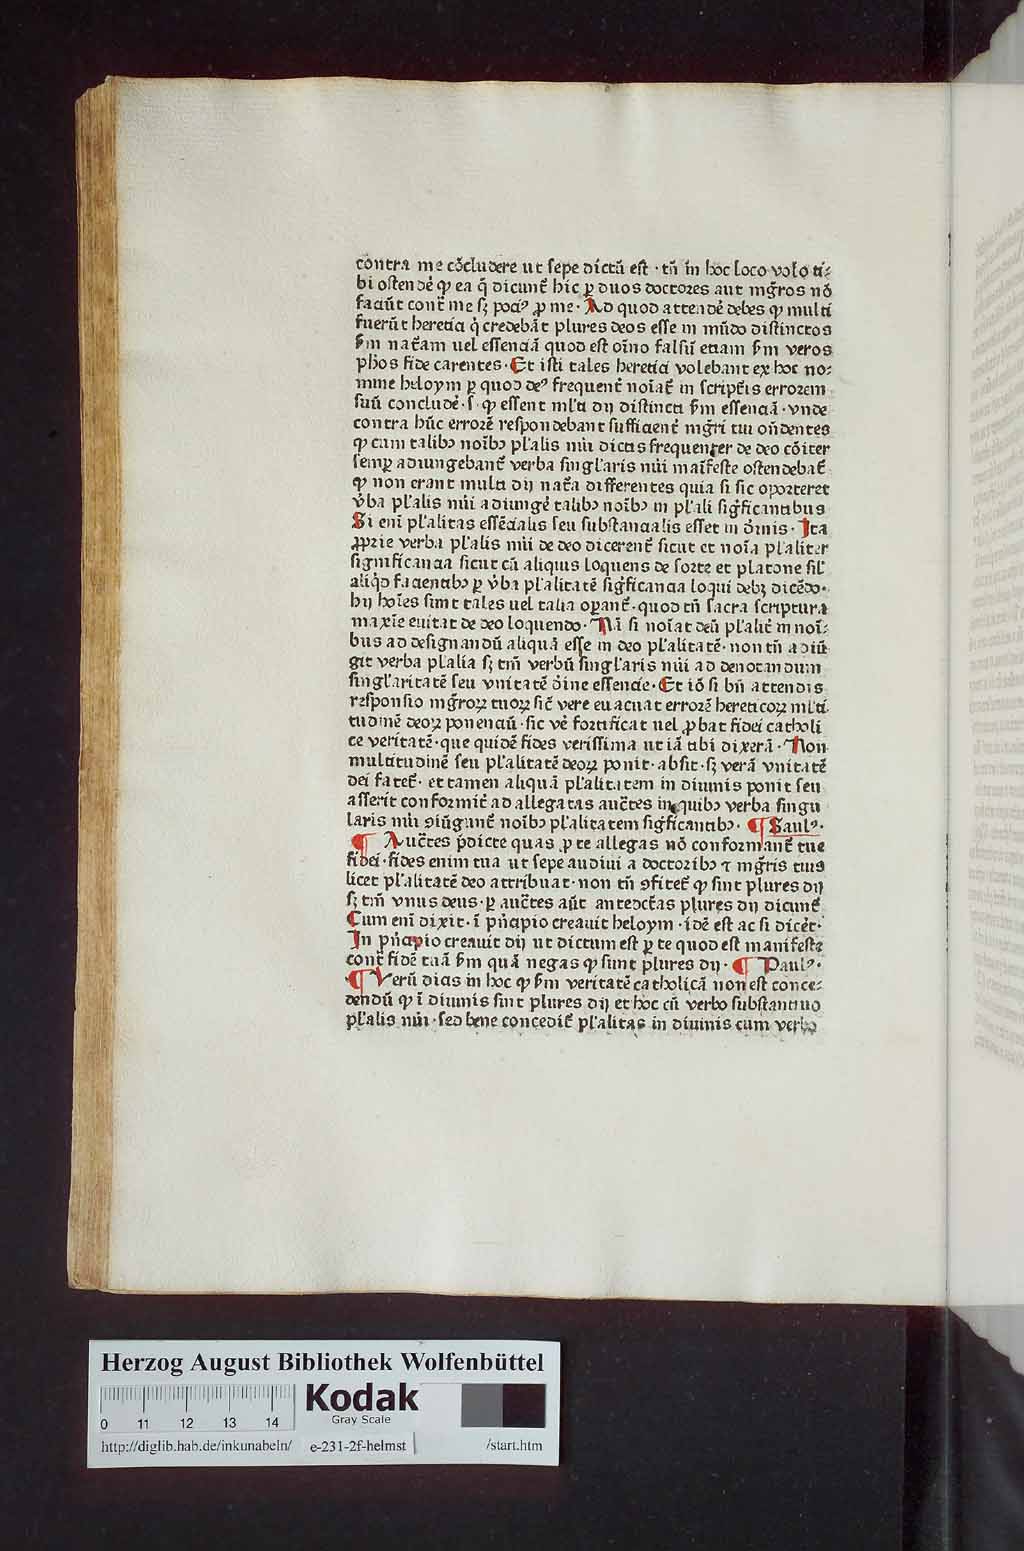 contra me cōcludere ut sepe dictū est · tñ in hoc loco volo ti⸗
bi ostendē ꝙ ea q̄ dicunt̄ hic ꝑ duos doctores aut mḡros nō
faciūt cont̄ me sꝫ pociꝰ ꝓ me · Ad quod attendē debes ꝙ multi
fuerūt heretici q̄ credebāt plures deos esse in mūdo distinctos
ẜm nat̄am uel essenciā quod est oīno falsū etiam ẜm veros
ph̄os fide carentes · Et isti tales heretici volebant ex hoc no⸗
mine heloym ꝑ quod deꝰ frequent̄ noīat̄ in script̄is errorem
suū concludē · s̄ · ꝙ essent ml̄ti dij distincti ẜm essenciā · vnde
contra hūc errorē respondebant sufficient̄ mḡri tui on̄dentes
ꝙ cum talibꝫ noībꝫ pl̄alis nūi dictis frequenter de deo cōiter
semꝑ adiungebant̄ verba singl̄aris nūi maīfeste ostendebat̄
ꝙ non erant multi dij nat̄a differentes quia si sic oporteret
v̄ba pl̄alis nūi adiungē talibꝫ noībꝫ in pl̄ali siḡficantibus
Si enī pl̄alitas essēcialis seu substancialis esset in dīnis · Ita
ꝓprie verba pl̄alis nūi de deo dicerent̄ sicut et noīa pl̄aliter
significancia sicut cū aliquis loquens de sorte et platone sil̄
aliq̄d facientibꝫ ꝑ v̄ba pl̄alitatē siḡficancia loqui debꝫ dicēdo ·
hij hoīes sunt tales uel talia oꝑant̄ · quod tñ sacra scriptura
maxīe euitat de deo loquendo · Nā si noīat deū pl̄alit̄ in noī⸗
bus ad designandū aliquā esse in deo pl̄alitatē · non tñ adiū⸗
git verba pl̄alia sꝫ tm̄ verbū singl̄aris nūi ad denotandum
singl̄aritatē seu vnitatē dīne essencie · Et iō si bn̄ attendis
responsio mḡroꝝ tuoꝝ sic̄ vere euacuat errorē hereticoꝝ ml̄ti⸗
tudinē deoꝝ ponenciū · sic vē fortificat uel ꝓbat fidei catholi
ce veritatē · que quidē fides verissima ut iā tibi dixerā · Non
multitudinē seu pl̄alitatē deoꝝ ponit · absit · sꝫ verā vnitatē
dei fatet̄ · et tamen aliquā pl̄alitatem in diuinis ponit seu
asserit conformit̄ ad allegatas auct̄es in quibꝫ verba singu
laris nūi ꝯiūgant̄ noībꝫ pl̄alitatem siḡficantibꝫ · ¶ Saulꝰ ·
¶ Auct̄es p̄dicte quas ꝑ te allegas nō conformant̄ tue
fidei · fides enim tua ut sepe audiui a doctoribꝫ ⁊ mḡris tuis
licet pl̄alitatē deo attribuat · non tñ ꝯfitet̄ ꝙ sint plures dij
sꝫ tm̄ vnus deus · ꝑ auct̄es aūt antedict̄as plures dij dicunt̄
Cum enī dixit · ī pn̄cipio creauit heloym · idē est ac si dicēt ·
In pn̄cipio creauit dij ut dictum est ꝑ te quod est manifeste
cont̄ fidē tuā ẜm quā negas ꝙ sunt plures dij · ¶ Paulꝰ ·
¶ Verū dicis in hoc ꝙ ẜm veritatē catholicā non est conce⸗
dendū ꝙ ī diuinis sint plures dij et hoc cū verbo substantiuo
pl̄alis nūi · sed bene concedit̄ pl̄alitas in diuinis cum verbo
Herzog August Bibliothek Wolfenbüttel
Kodak
Gray Scale
0 11 12 13 14
http://diglib.hab.de/inkunabeln/ e-231-2f-helmst /start.htm